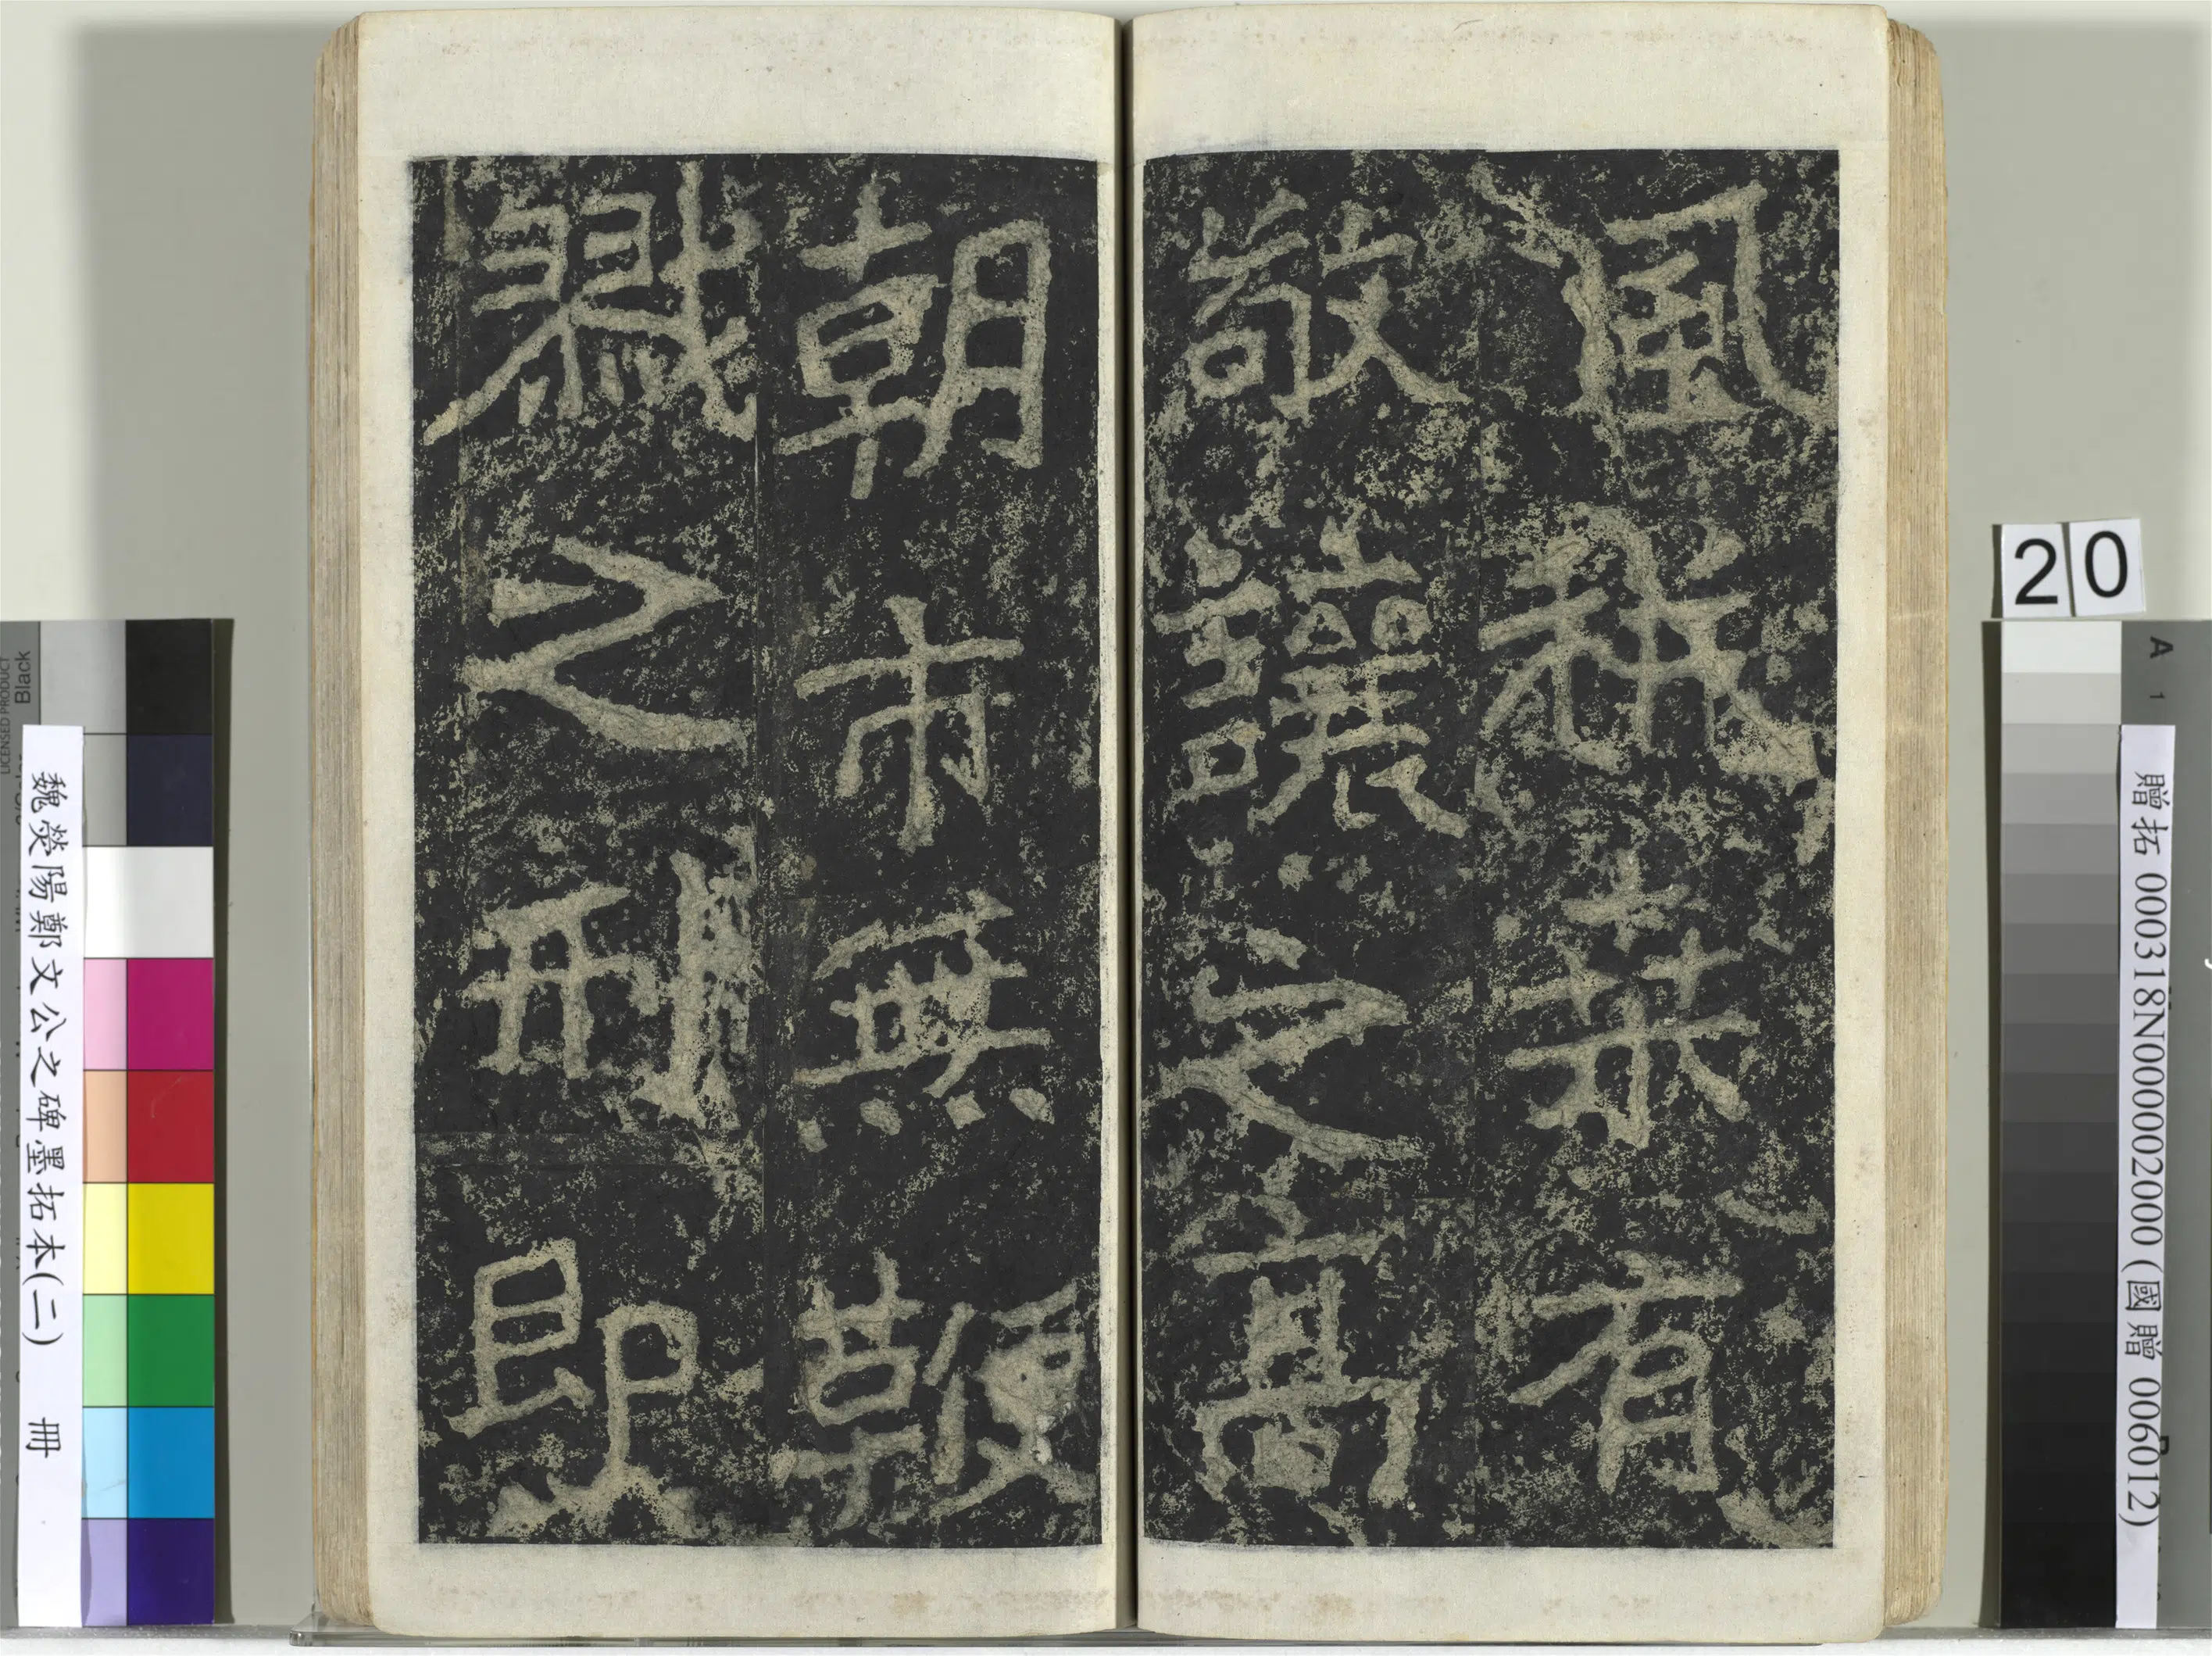 風耕桑有
敬讓之高
朝市無鞭
戮之刑即
20
贈拓 000318N000002000 (國贈 006012)
魏滎陽鄭文公之碑墨拓本(二) 冊
Black
A 1